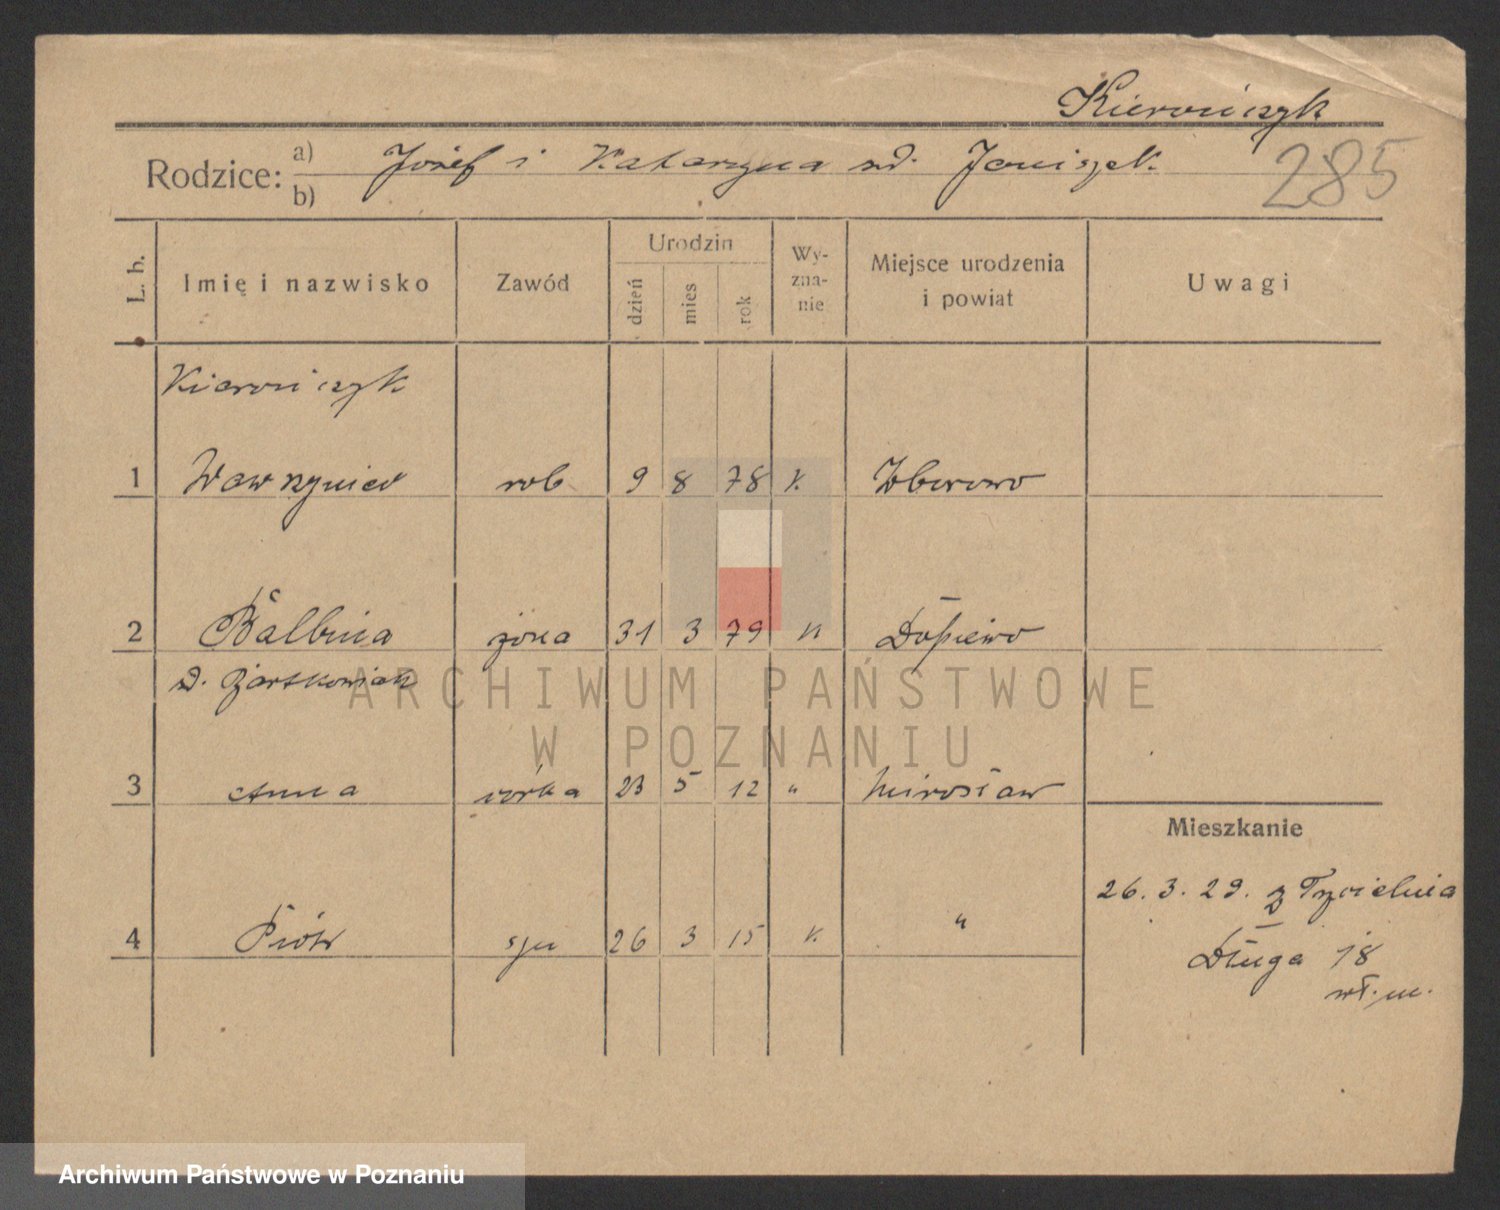 Kierończyk
Rodzice: a) Józef i Katarzyna zd. Janiszek
b)
285
L. b.
Imię i nazwisko
Zawód
Urodzin
dzień
mies
rok
Wy-
zna-
nie
Miejsce urodzenia
i powiat
Uwagi
Kierończyk
1 Wawrzyniec rob 9 8 78 k.
2 Balbina żona 31 3 79 k Dopiewo
zd. Bartkowiak
3 Anna córka 23 5 12 " Mirosław
4 Piotr syn 26 3 15 k. "
Mieszkanie
26.3.29. z
Długa 18
wł. m.
ARCHIWUM PAŃSTWOWE
W POZNANIU
Archiwum Państwowe w Poznaniu